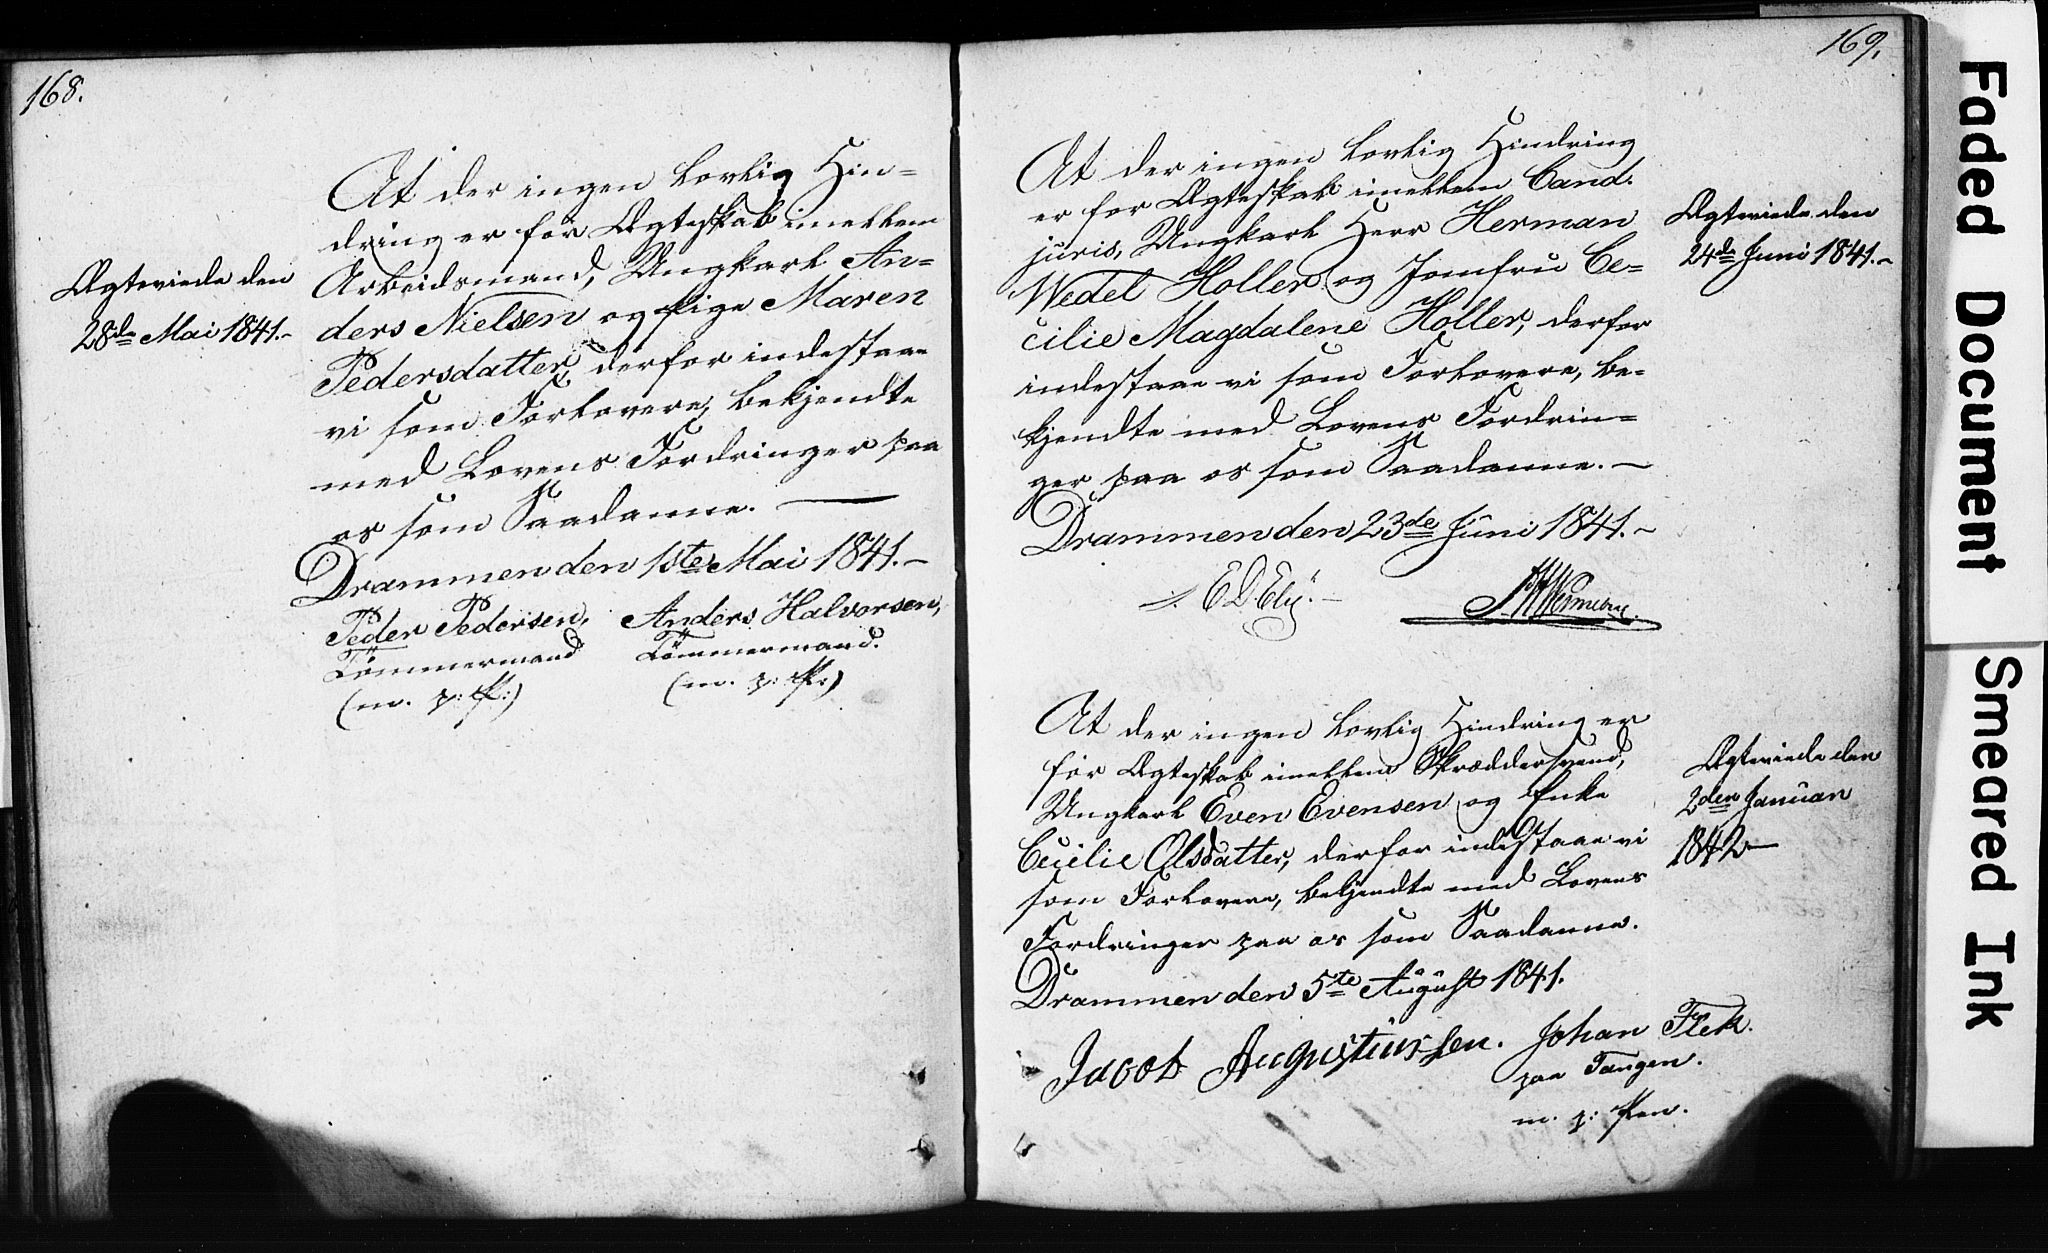 168.
At der ingen lovlig Hin=
dring er for Ægteskab imellem
Arbeidsmand, Ungkarl An=
ders Nielsen og Pige Maren
Pedersdatter, derfor indestaae
vi som Forlovere, bekjendte
med Lovens Fordringer paa
os som Saadanne. —
Drammen den 1ste Mai 1841.-
Peder Pedersen, Anders Halvorsen,
Tömmermand Tömmermand.
(m. p: P:) (m. p: P:)
Ægteviede den
28de Mai 1841.-
169.
At der ingen lovlig Hindring
er for Ægteskab imellem Cand.
juris, Ungkarl Herr Herman
Wedel Holler og Jomfru Ce=
cilie Magdalene Holler, derfor
indestaae vi som Forlovere, be=
kjendte med Lovens Fordrin=
ger paa os som Saadanne. -
Drammen den 23de Juni 1841.-
Ægteviede den
24de Juni 1841.-
At der ingen lovlig Hindring er
for Ægteskab imellem Skræddersvend,
Ungkarl Even Evensen og Enke
Cecilie Olsdatter, derfor indestaae vi
som Forlovere, bekjendte med Lovens
Fordringer paa os som Saadanne.
Drammen den 5te August 1841.
Jacob Augustinussen. Johan Flek.
paa Tangen.
m. p: Pen.
Ægteviede den
2den Januar
1842-
Faded Document
Smeared Ink